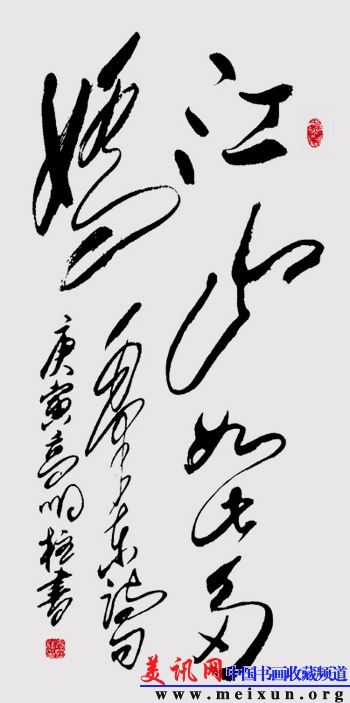 江山如此多
娇
毛泽东诗句
庚寅高明柱书
美讯网 中国书画收藏频道
www.meixun.org